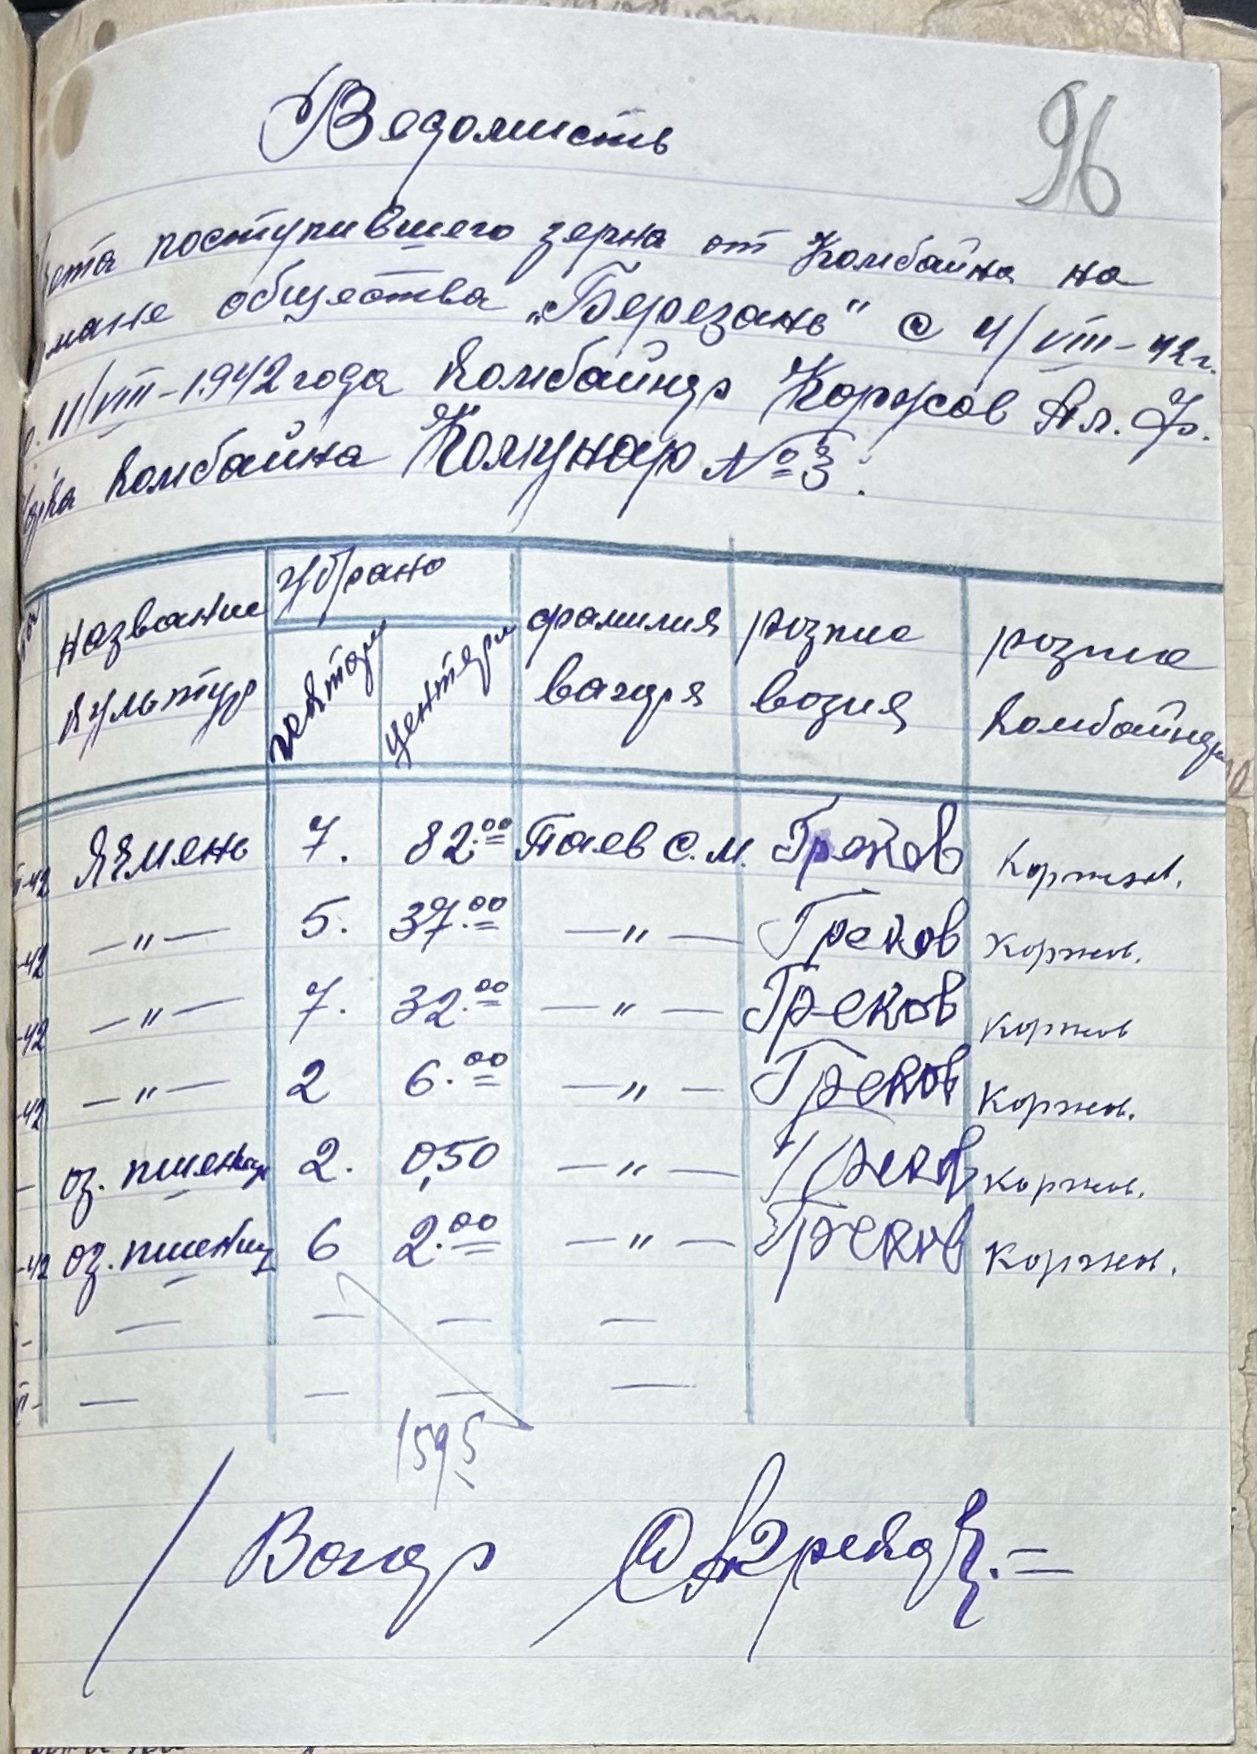 Ведомисть
96
поступившего зерна от Комбайна на
общества „Березань" с 4/VIII-42г.
11/VIII-1942 года комбайнер Коржов Ал. Ф.
комбайна Комунар №3.
Название культур
Убрано
гектар
центнер
фамилия вагаря
розпис возия
розпис комбайнера
Ячмень 7. 82.00 Паев С.М. Греков Коржов.
-42 —"— 5. 37.00 —"— Греков Коржов.
-42 —"— 7. 32.00 —"— Греков Коржов
-42 —"— 2 6.00 —"— Греков Коржов.
оз. пшениц 2. 0,50 —"— Греков Коржов.
-42 оз. пшениц 6 2.00 —"— Греков Коржов.
— — — —
— — — —
159,5
Вагар